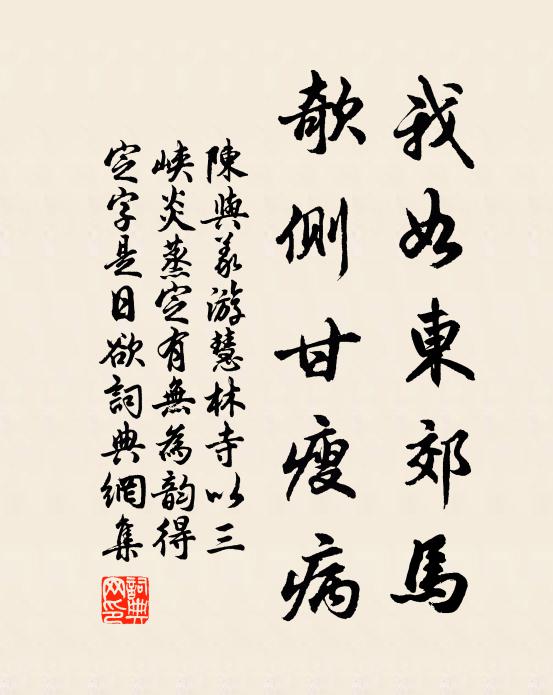 我如東郊馬
欹側甘瘦病
陳與義游慧林寺以三
峽炎蒸定有無為韵得
定字是日欲詞典網集
詞典
网印